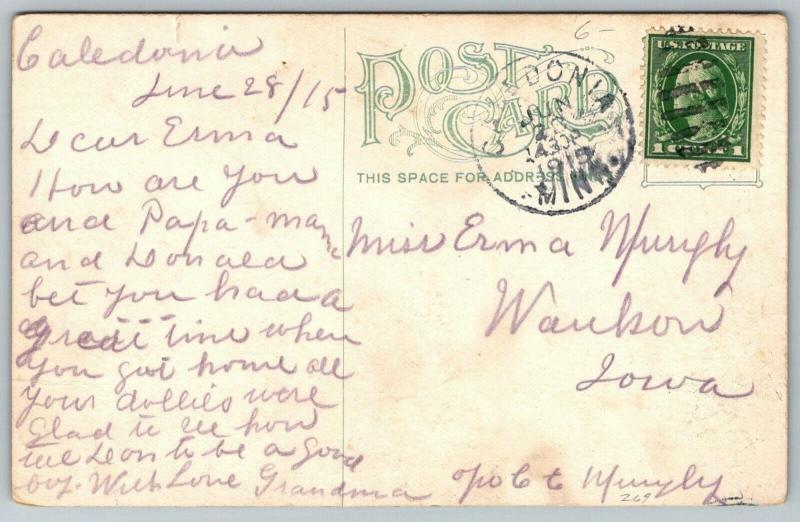 Caledonia
June 28/15
Dear Erma
How are you
and Papa-mama
and Donald
bet you had a
great time when
you got home all
your dollies were
Glad to see you
tell Don to be a good
boy. With Love Grandma
6-
POST CARD
THIS SPACE FOR ADDRESS ONLY
CALEDONIA
JUN
28
430P
1915
MINN.
U.S. POSTAGE
1 CENT 1
Miss Erma Murphy
Waukon
Iowa
c/o C E Murphy
269